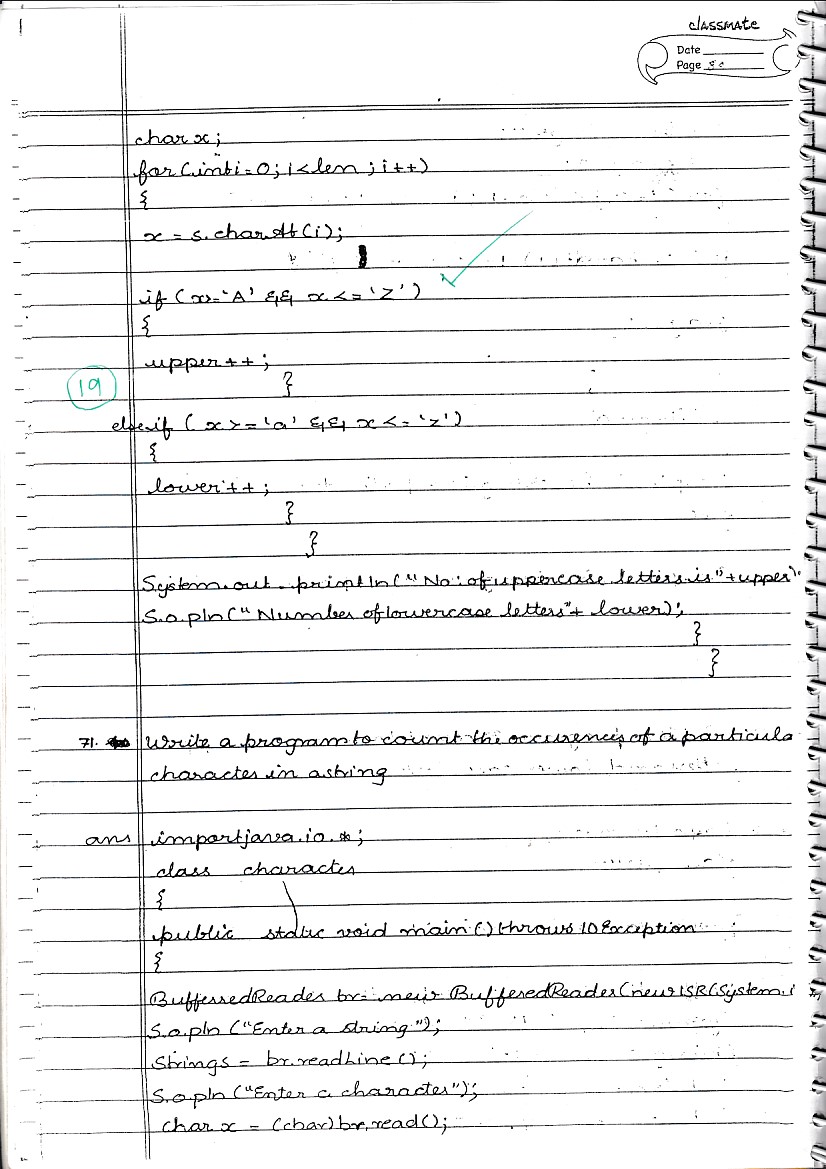 classmate
Date
Page
char x;
for(int i=0; i<len; i++)
{
x = s.charAt(i);
if (x>='A' && x<='Z')
{
upper++;
}
19
else if (x>='a' && x<='z')
{
lower++;
}
}
System.out.println("No: of uppercase letters is"+upper);
S.o.pln("Number of lowercase letters"+ lower);
}
}
71. Write a program to count the occurences of a particula
character in a string
ans import java.io.*;
class character
{
public static void main() throws IOException
{
BufferredReader br= new BufferedReader(new ISR(System.i
S.o.pln ("Enter a string");
String s = br.readLine();
S.o.pln ("Enter a character");
char x = (char)br.read();